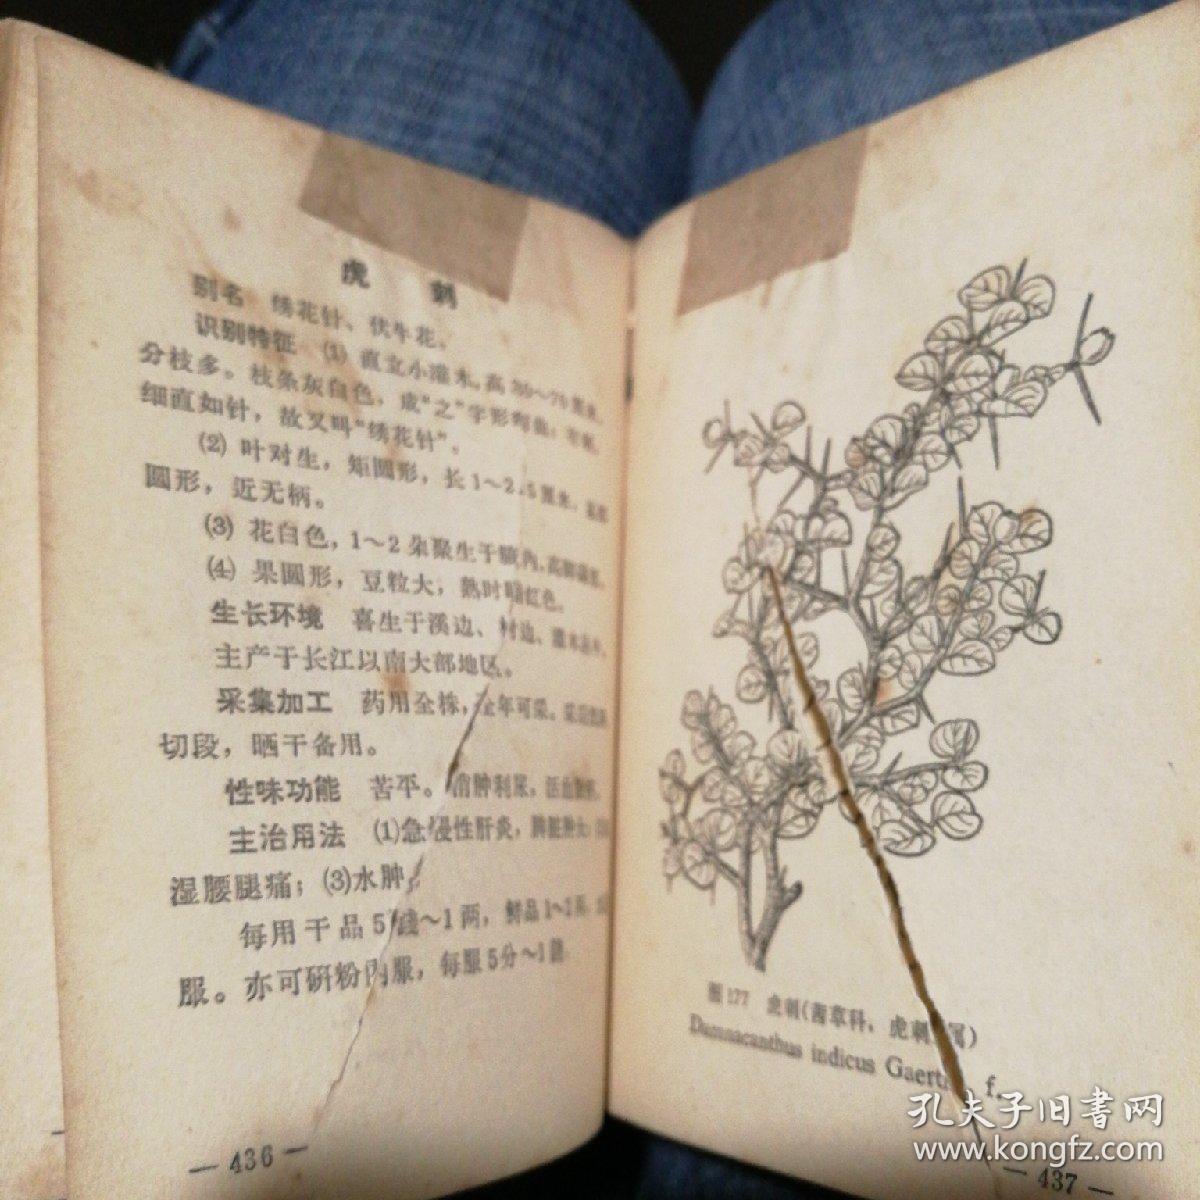 虎 刺
别名 绣花针、伏牛花。
识别特征 ⑴ 直立小灌木，高30～70厘米，
分枝多。枝条灰白色，成“之”字形弯曲，有刺，
细直如针，故又叫“绣花针”。
⑵ 叶对生，矩圆形，长1～2.5厘米，
圆形，近无柄。
⑶ 花白色，1～2朵聚生于腋内，高脚
⑷ 果圆形，豆粒大，熟时暗红色。
生长环境 喜生于溪边、村边、灌木丛中，
主产于长江以南大部地区。
采集加工 药用全株，全年可采。采
切段，晒干备用。
性味功能 苦平。消肿利尿，活血
主治用法 ⑴急慢性肝炎，脾脏肿大；
湿腰腿痛；⑶水肿。
每用干品5钱～1两，鲜品1～2两，
服。亦可研粉内服，每服5分～1钱
— 436 —
图177 虎刺（茜草科，虎刺属）
Damnacanthus indicus Gaertn. f.
— 437 —
孔夫子旧书网
www.kongfz.com